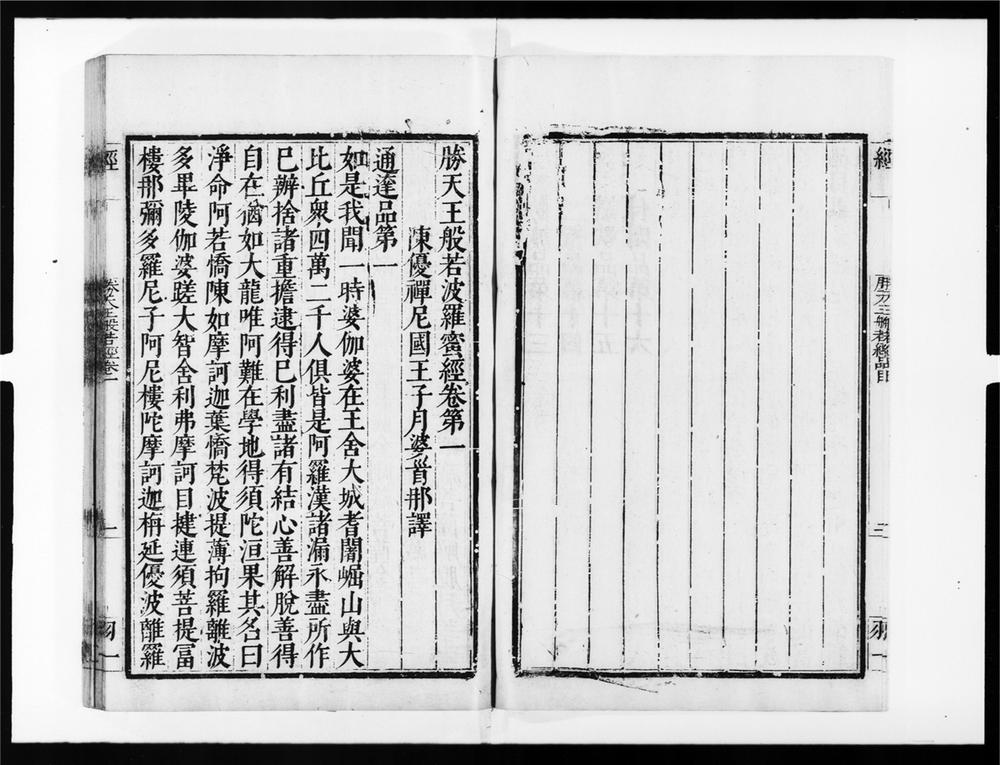 經
勝天王般若經品目
三
羽一
勝天王般若波羅蜜經卷第一
陳優禪尼國王子月婆首那譯
通達品第一
如是我聞一時婆伽婆在王舍大城耆闍崛山與大
比丘衆四萬二千人俱皆是阿羅漢諸漏永盡所作
已辦捨諸重擔逮得已利盡諸有結心善解脫善得
自在猶如大龍唯阿難在學地得須陀洹果其名曰
淨命阿若憍陳如摩訶迦葉憍梵波提薄拘羅離波
多畢陵伽婆蹉大智舍利弗摩訶目揵連須菩提冨
樓那彌多羅尼子阿尼樓陀摩訶迦栴延優波離羅
經
勝天王般若經卷一
一
羽一